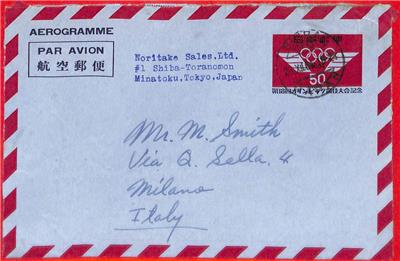 AEROGRAMME
PAR AVION
航空郵便
Noritake Sales.Ltd.
#1 Shiba-Toranomon
Minatoku.Tokyo,Japan
50
Mr. M. Smith
Via Q. Sella, 4
Milano
Italy